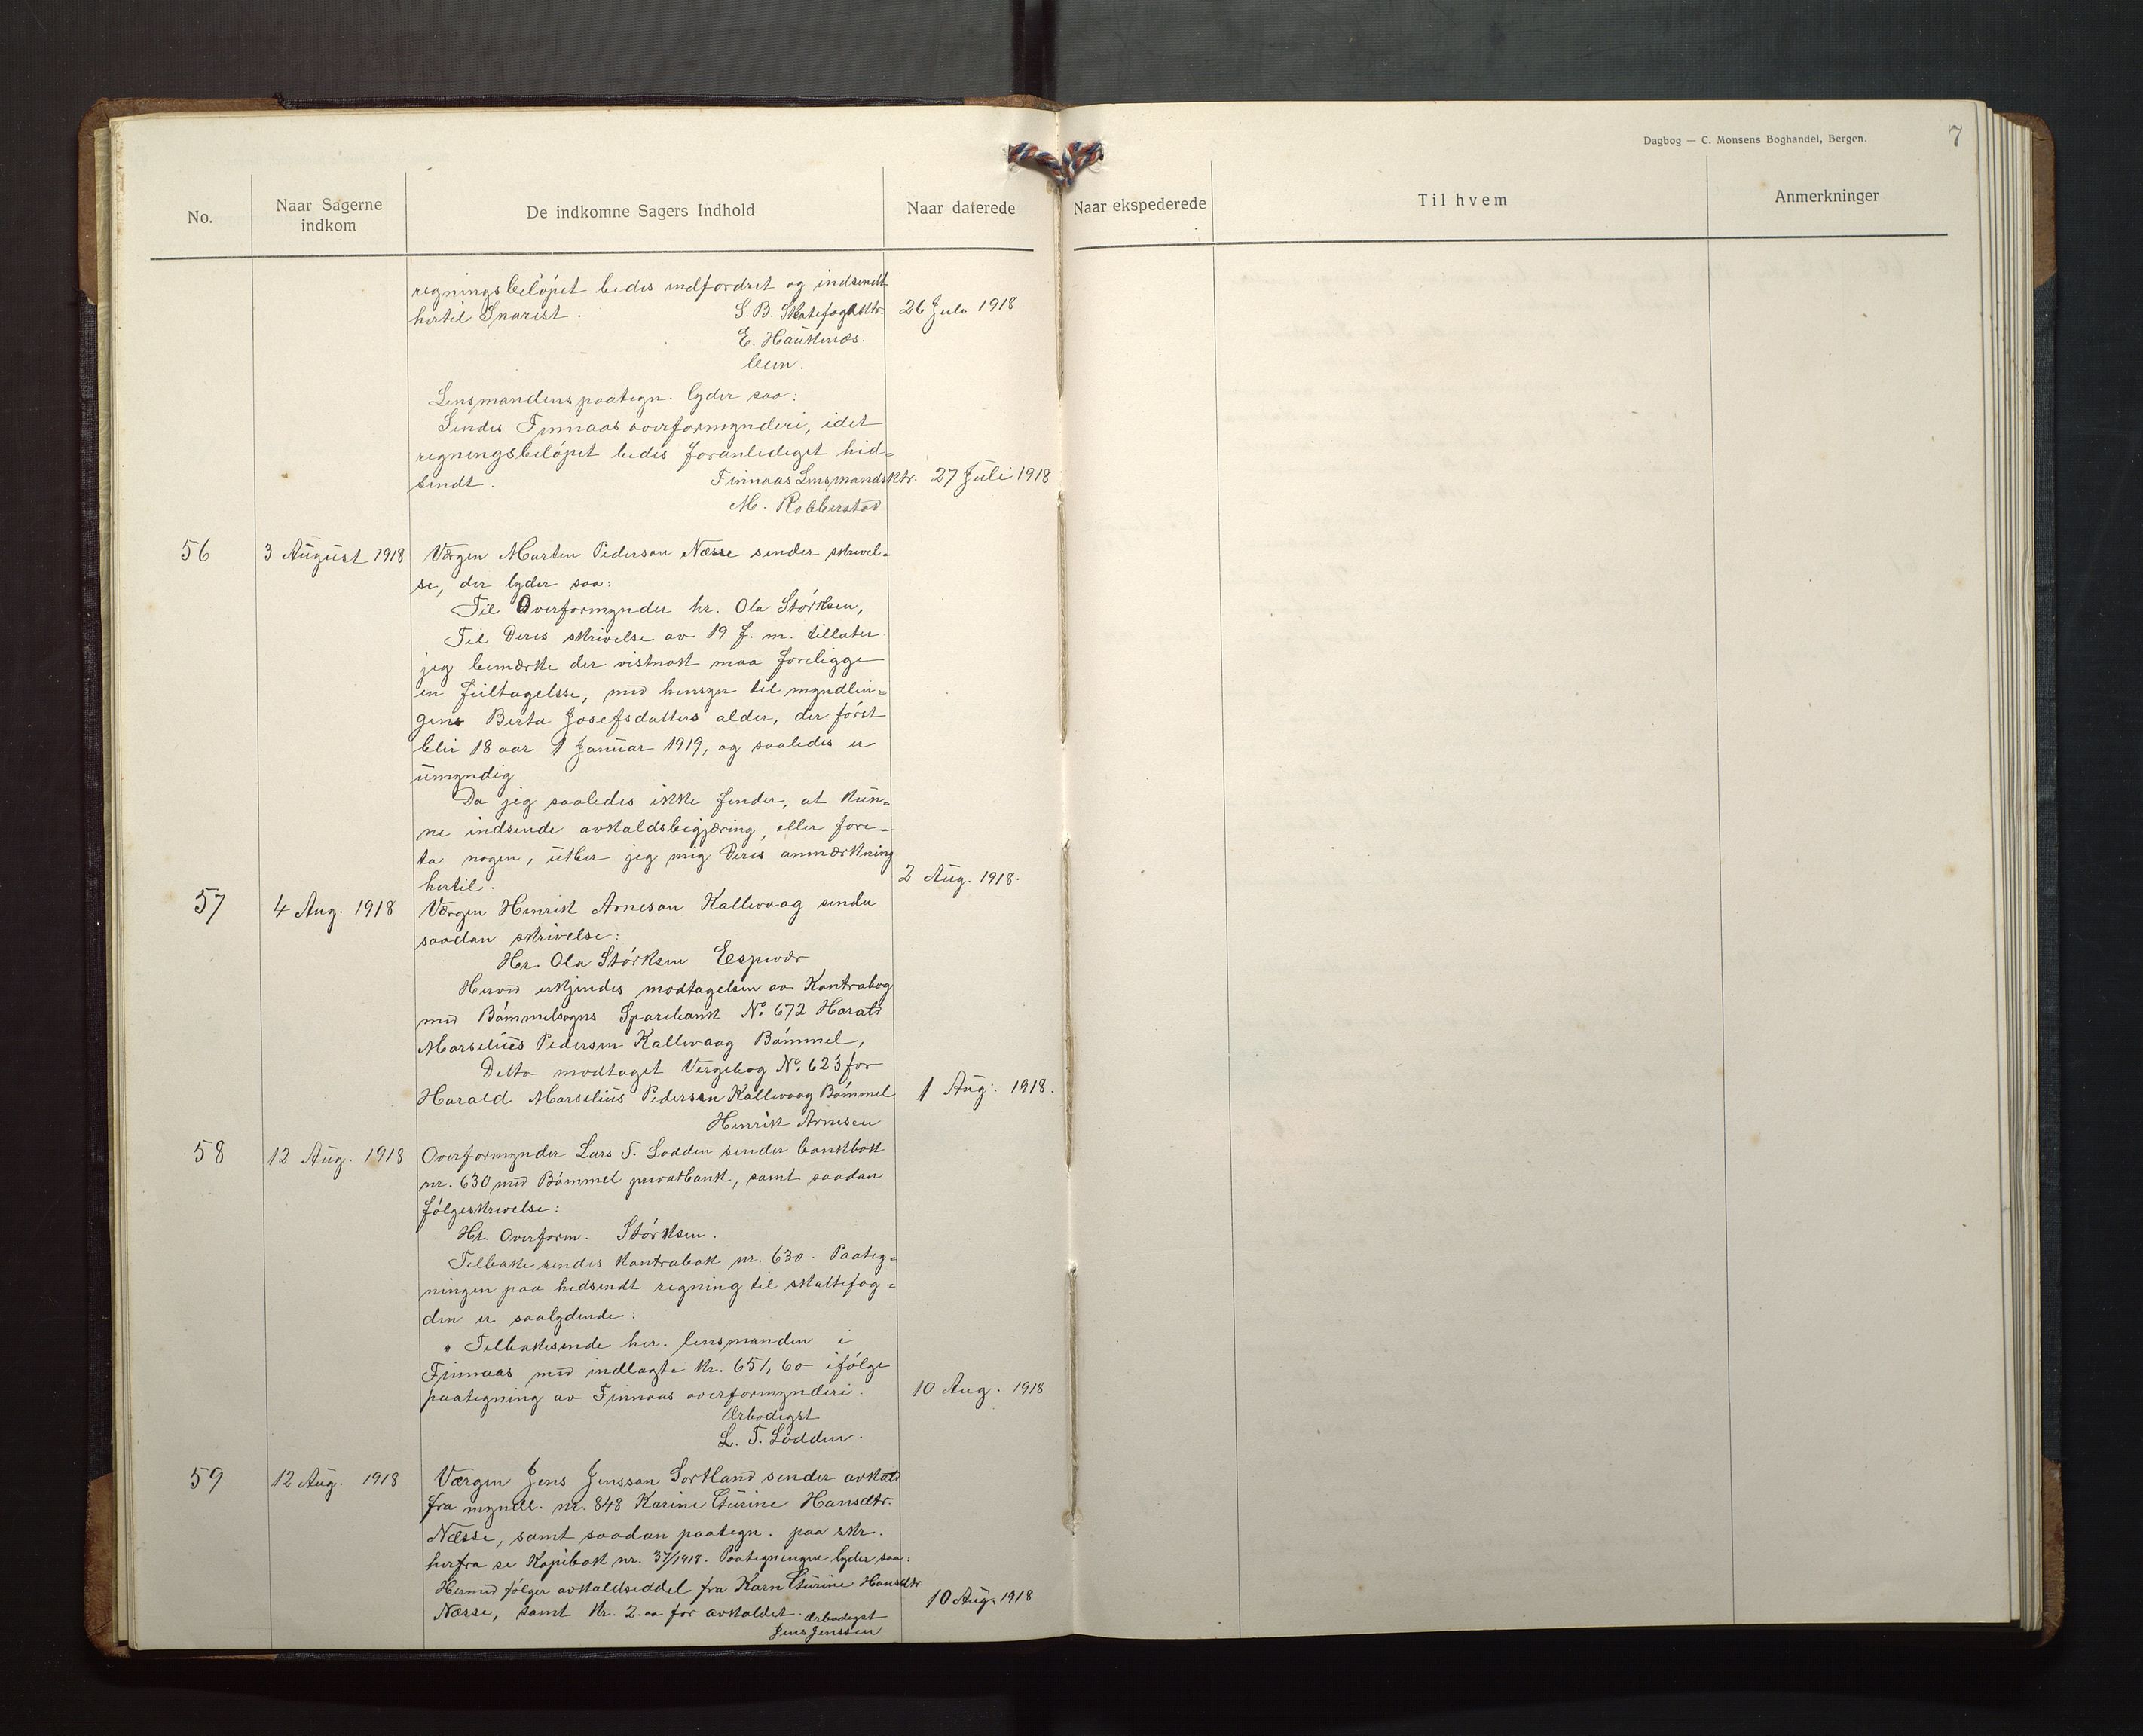 Dagbog — C. Monsens Boghandel, Bergen.
7
No.
Naar Sagerne
indkom
De indkomne Sagers Indhold
Naar daterede
Naar ekspederede
Til hvem
Anmerkninger
regningsbeløpet bedes indfordret og indsendt
hertil Snarest. S. B. Skatefogdktr. 26 Juli 1918
E. Hauknæs.
Lensmandens paategn. lyder saa:
Sendes Finnaas overformynderi, idet
regningsbeløpet bedes foranlediget hid=
sendt. Finnaas Lensmandsktr. 27 Juli 1918
M. Robberstad
56 3 August 1918 Værgen Marten Pederson Næsse sender skrivel=
se, der lyder saa:
Til Overformynder hr. Ola Størksen,
Til Deres skrivelse av 19 f. m. tillater
jeg bemærke der vistnok maa foreligge
en feiltagelsse, med hensyn til myndlin=
gens Berta Josefsdatters alder, der først
blir 18 aar 1 Januar 1919, og saaledes er
umyndig
Da jeg saaledes ikke finder, at kun=
ne indsende avkaldsbegjæring, eller fore=
ta nogen, utber jeg mig Deres anmærkning
hertil. 2 Aug. 1918.
57 4 Aug. 1918 Værgen Henrik Arneson Kallevaag sender
saadan skrivelse:
Hr. Ola Størksen Espevær
Herved erkjendes modtagelsen av Kontrabog
med Bømmelsogns Sparebank No 672 Harald
Marselius Pedersen Kallevaag Bømmel,
Dette modtaget Vergebog No. 623 for
Harald Marselius Pedersen Kallevaag Bømmel. 1 Aug. 1918.
Henrik Arnesen
58 12 Aug. 1918 Overformynder Lars T. Lodden sender bankbok
nr. 630 med Bømmel privatbank, samt saadan
følgeskrivelse:
Hr. Overform. Størksen.
Tilbake sendes Kontrabok nr. 630. Paateg=
ningen paa hedsendt regning til skattefog=
den er saalydende:
" Tilbakesende her. lensmanden i
Finnaas med indlagte kr. 651,60 ifølge
paategning av Finnaas overformynderi. 10 Aug. 1918
Ærbødigst
L. T. Lodden.
59 12 Aug. 1918 Værgen Jens Jensson Sortland sender avkald
fra myndl. nr. 848 Karine Turine Hansdtr.
Næsse, samt saadan paategn. paa skr.
herfra se Kopibok nr. 37/1918. Paategningen lyder saa:
Hermed følger avkaldseddel fra Karn Turine Hansdtr.
Næsse, samt Kr. 2.00 for avkaldet. Ærbødigst 10 Aug. 1918
Jens Jenssen